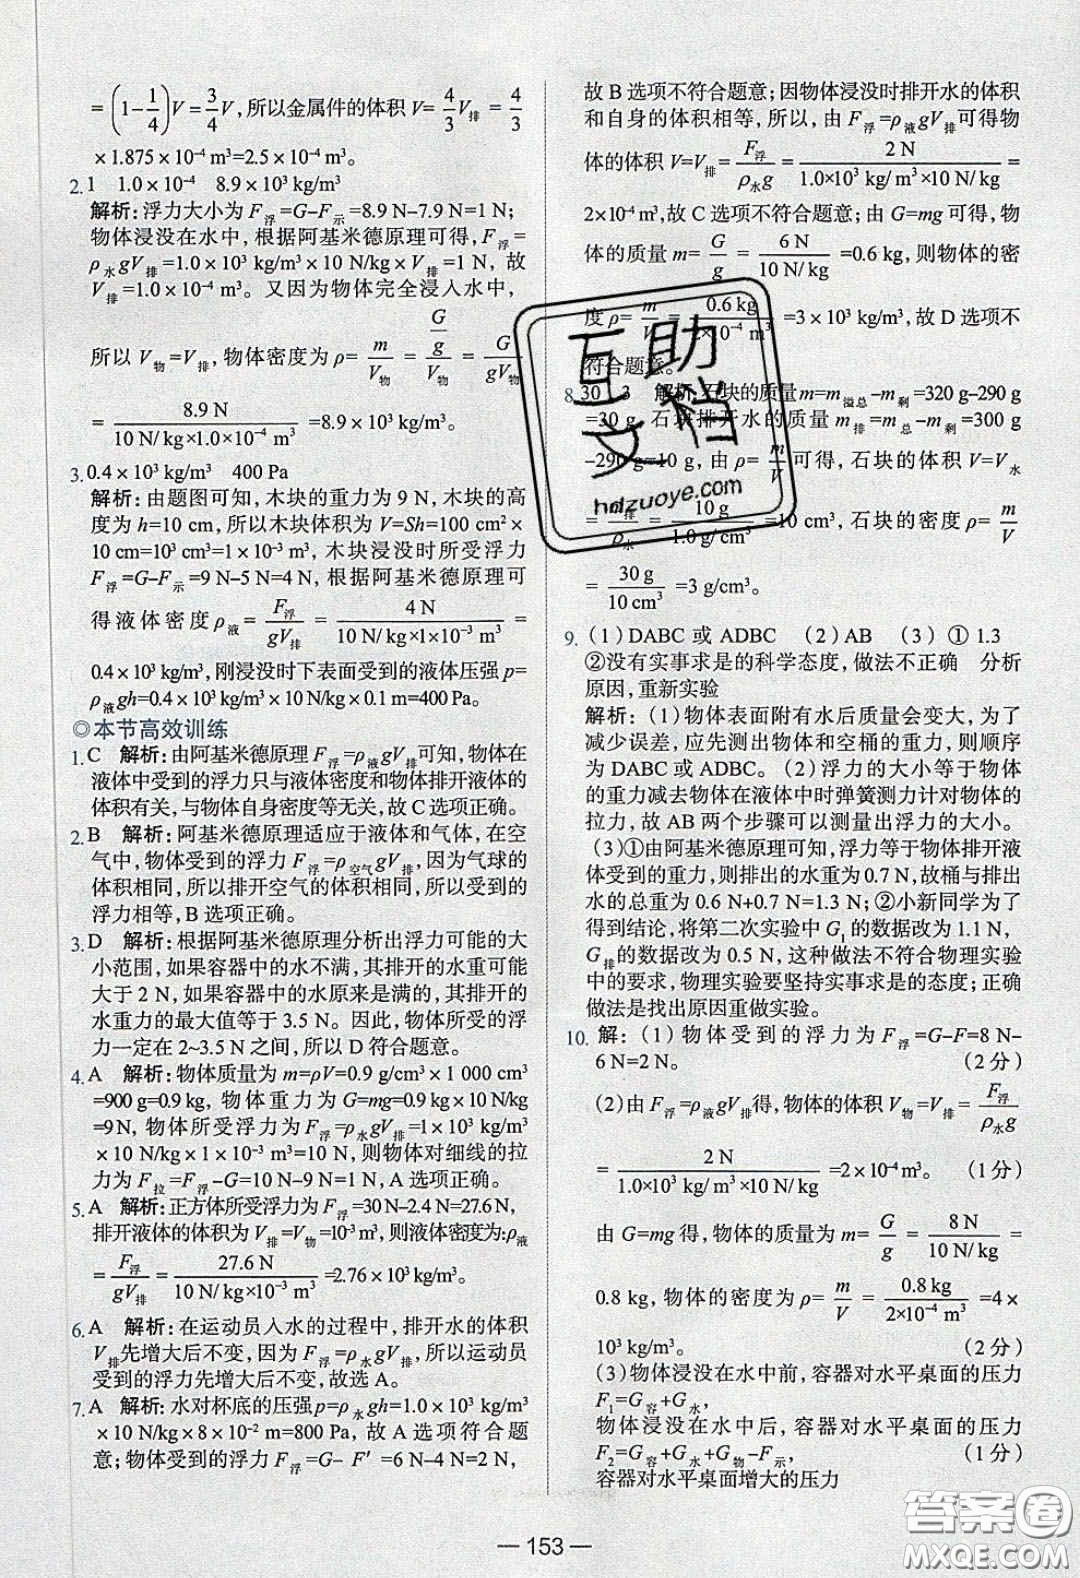 =(1-1/4)V=3/4V,所以金属件的体积 V=4/3V排=4/3
×1.875×10⁻⁴ m³=2.5×10⁻⁴ m³。
2.1　1.0×10⁻⁴　8.9×10³ kg/m³
解析:浮力大小为 F浮=G-F示=8.9 N-7.9 N=1 N;
物体浸没在水中,根据阿基米德原理可得,F浮=
ρ水gV排=1.0×10³ kg/m³×10 N/kg×V排=1 N,故
V排=1.0×10⁻⁴ m³。又因为物体完全浸入水中,
所以 V物=V排,物体密度为 ρ=m/V物=(G/g)/V物=G/gV物
=8.9 N/(10 N/kg×1.0×10⁻⁴ m³)=8.9×10³ kg/m³。
3.0.4×10³ kg/m³　400 Pa
解析:由题图可知,木块的重力为 9 N,木块的高
度为 h=10 cm,所以木块体积为 V=Sh=100 cm²×
10 cm=10³ cm³=1×10⁻³ m³,木块浸没时所受浮力
F浮=G-F示=9 N-5 N=4 N,根据阿基米德原理可
得液体密度 ρ液=F浮/gV排=4 N/(10 N/kg×1×10⁻³ m³)=
0.4×10³ kg/m³,刚浸没时下表面受到的液体压强 p=
ρ液gh=0.4×10³ kg/m³×10 N/kg×0.1 m=400 Pa。
◎本节高效训练
1.C　解析:由阿基米德原理 F浮=ρ液gV排可知,物体在
液体中受到的浮力只与液体密度和物体排开液体的
体积有关,与物体自身密度等无关,故 C 选项正确。
2.B　解析:阿基米德原理适应于液体和气体,在空
气中,物体受到的浮力 F浮=ρ空气gV排,因为气球的
体积相同,所以排开空气的体积相同,所以受到的
浮力相等,B 选项正确。
3.D　解析:根据阿基米德原理分析出浮力可能的大
小范围,如果容器中的水不满,其排开的水重可能
大于 2 N,如果容器中的水原来是满的,其排开的
水重力的最大值等于 3.5 N。因此,物体所受的浮
力一定在 2~3.5 N 之间,所以 D 符合题意。
4.A　解析:物体质量为 m=ρV=0.9 g/cm³×1 000 cm³
=900 g=0.9 kg,物体重力为 G=mg=0.9 kg×10 N/kg
=9 N,物体所受浮力为 F浮=ρ水gV排=1×10³ kg/m³
×10 N/kg×1×10⁻³ m³=10 N,则物体对细线的拉
力为 F拉=F浮-G=10 N-9 N=1 N,A 选项正确。
5.A　解析:正方体所受浮力为 F浮=30 N-2.4 N=27.6 N,
排开液体的体积为 V排=V物=10⁻³ m³,则液体密度为:ρ液
=F浮/gV排=27.6 N/(10 N/kg×10⁻³ m³)=2.76×10³ kg/m³。
6.A　解析:在运动员入水的过程中,排开水的体积
V排先增大后不变,因为 F浮=ρ水gV排,所以运动员
受到的浮力先增大后不变,故选 A。
7.A　解析:水对杯底的压强 p=ρ水gh=1.0×10³ kg/m³
×10 N/kg×8×10⁻² m=800 Pa,故 A 选项符合题
意;物体受到的浮力 F浮=G- F′=6 N-4 N=2 N,
故 B 选项不符合题意;因物体浸没时排开水的体积
和自身的体积相等,所以,由 F浮=ρ液gV排可得物
体的体积 V=V排=F浮/ρ水g=2 N/(1.0×10³ kg/m³×10 N/kg)=
2×10⁻⁴ m³,故 C 选项不符合题意;由 G=mg 可得,物
体的质量 m=G/g=6 N/(10 N/kg)=0.6 kg,则物体的密
度 ρ=m/V=0.6 kg/(2×10⁻⁴ m³)=3×10³ kg/m³,故 D 选项不
符合题意。
8.30　3　解析:石块的质量 m=m溢总-m剩=320 g-290 g
=30 g,石块排开水的质量 m排=m总-m剩=300 g
-290 g=10 g,由 ρ=m/V可得,石块的体积 V=V水
=m排/ρ水=10 g/(1.0 g/cm³)=10 cm³,石块的密度 ρ=m/V
=30 g/10 cm³=3 g/cm³。
9.(1)DABC 或 ADBC　(2)AB　(3)①1.3
②没有实事求是的科学态度,做法不正确　分析
原因,重新实验
解析:(1)物体表面附有水后质量会变大,为了
减少误差,应先测出物体和空桶的重力,则顺序
为 DABC 或 ADBC。(2)浮力的大小等于物体
的重力减去物体在液体中时弹簧测力计对物体的
拉力,故 AB 两个步骤可以测量出浮力的大小。
(3)①由阿基米德原理可知,浮力等于物体排开液
体受到的重力,则排出的水重为 0.7 N,故桶与排出
水的总重为 0.6 N+0.7 N=1.3 N;②小新同学为了
得到结论,将第二次实验中 G₁ 的数据改为 1.1 N,
G排的数据改为 0.5 N,这种做法不符合物理实验
中的要求,物理实验要坚持实事求是的态度;正确
做法是找出原因重做实验。
10.解:(1)物体受到的浮力为 F浮=G-F=8 N-
6 N=2 N。　(2 分)
(2)由 F浮=ρ液gV排得,物体的体积 V物=V排=F浮/ρ水g
=2 N/(1.0×10³ kg/m³×10 N/kg)=2×10⁻⁴ m³。　(1 分)
由 G=mg 得,物体的质量为 m=G/g=8 N/(10 N/kg)=
0.8 kg,物体的密度为 ρ=m/V=0.8 kg/(2×10⁻⁴ m³)=4×
10³ kg/m³。　(2 分)
(3)物体浸没在水中前,容器对水平桌面的压力
F₁=G容+G水,
物体浸没在水中后,容器对水平桌面的压力
F₂=G容+G水+G物-F示,　(1 分)
容器对水平桌面增大的压力
— 153 —
互助
文档
hdzuoye.com
答案圈
MXQE.COM